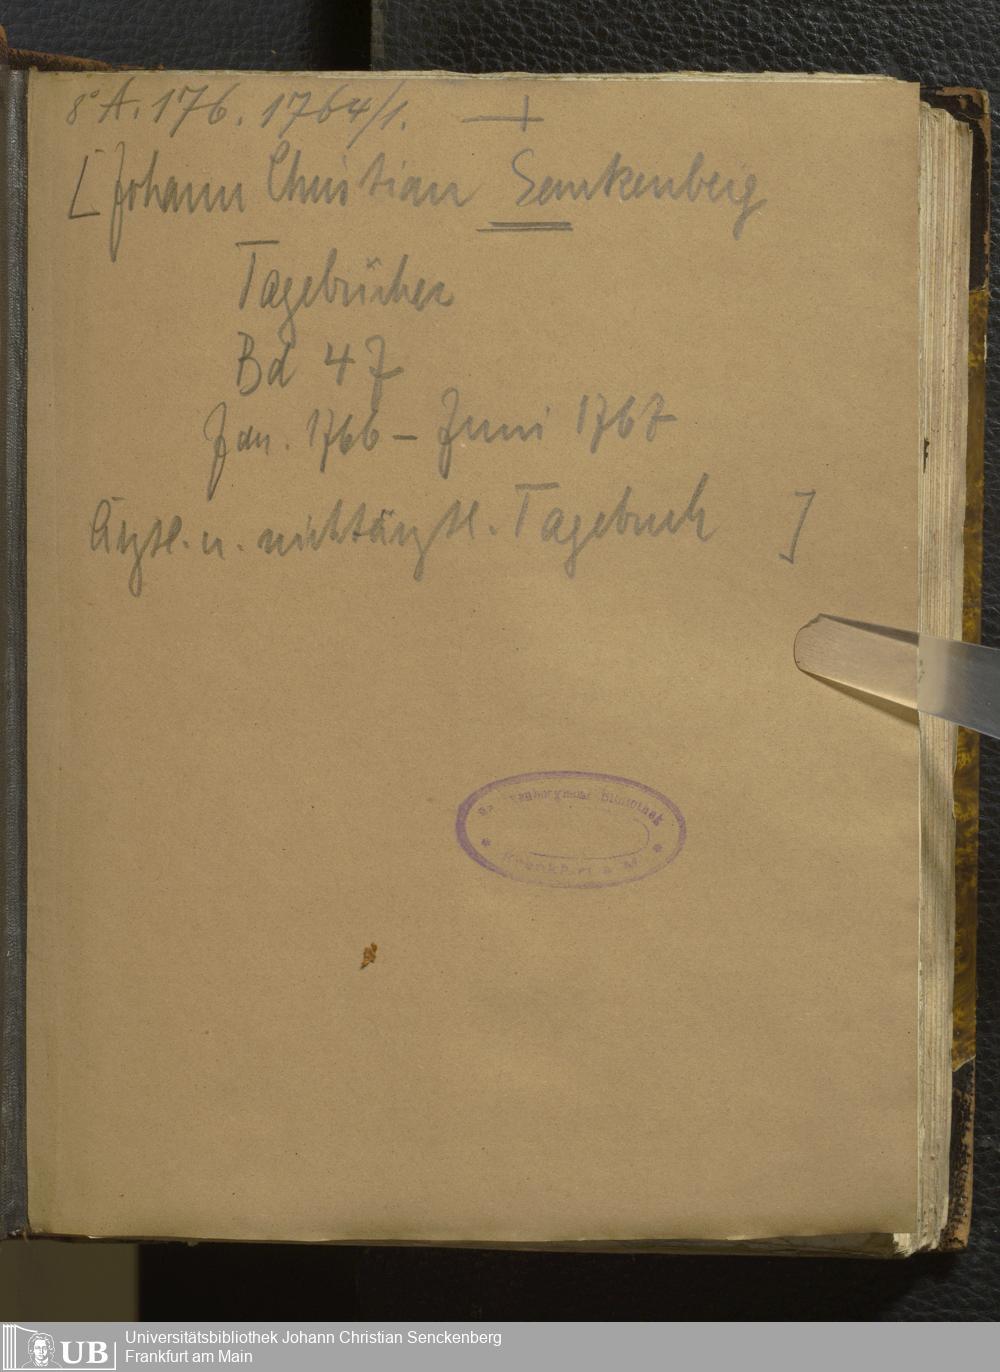 8° A. 176. 1764/1. +
[Johann Christian Senkenberg
Tagebücher
Bd 47
Jan. 1766 – Juni 1767
Ärztl. u. nichtärztl. Tagebuch ]
Bibliothek
Frankfurt a M.
UB
Universitätsbibliothek Johann Christian Senckenberg
Frankfurt am Main